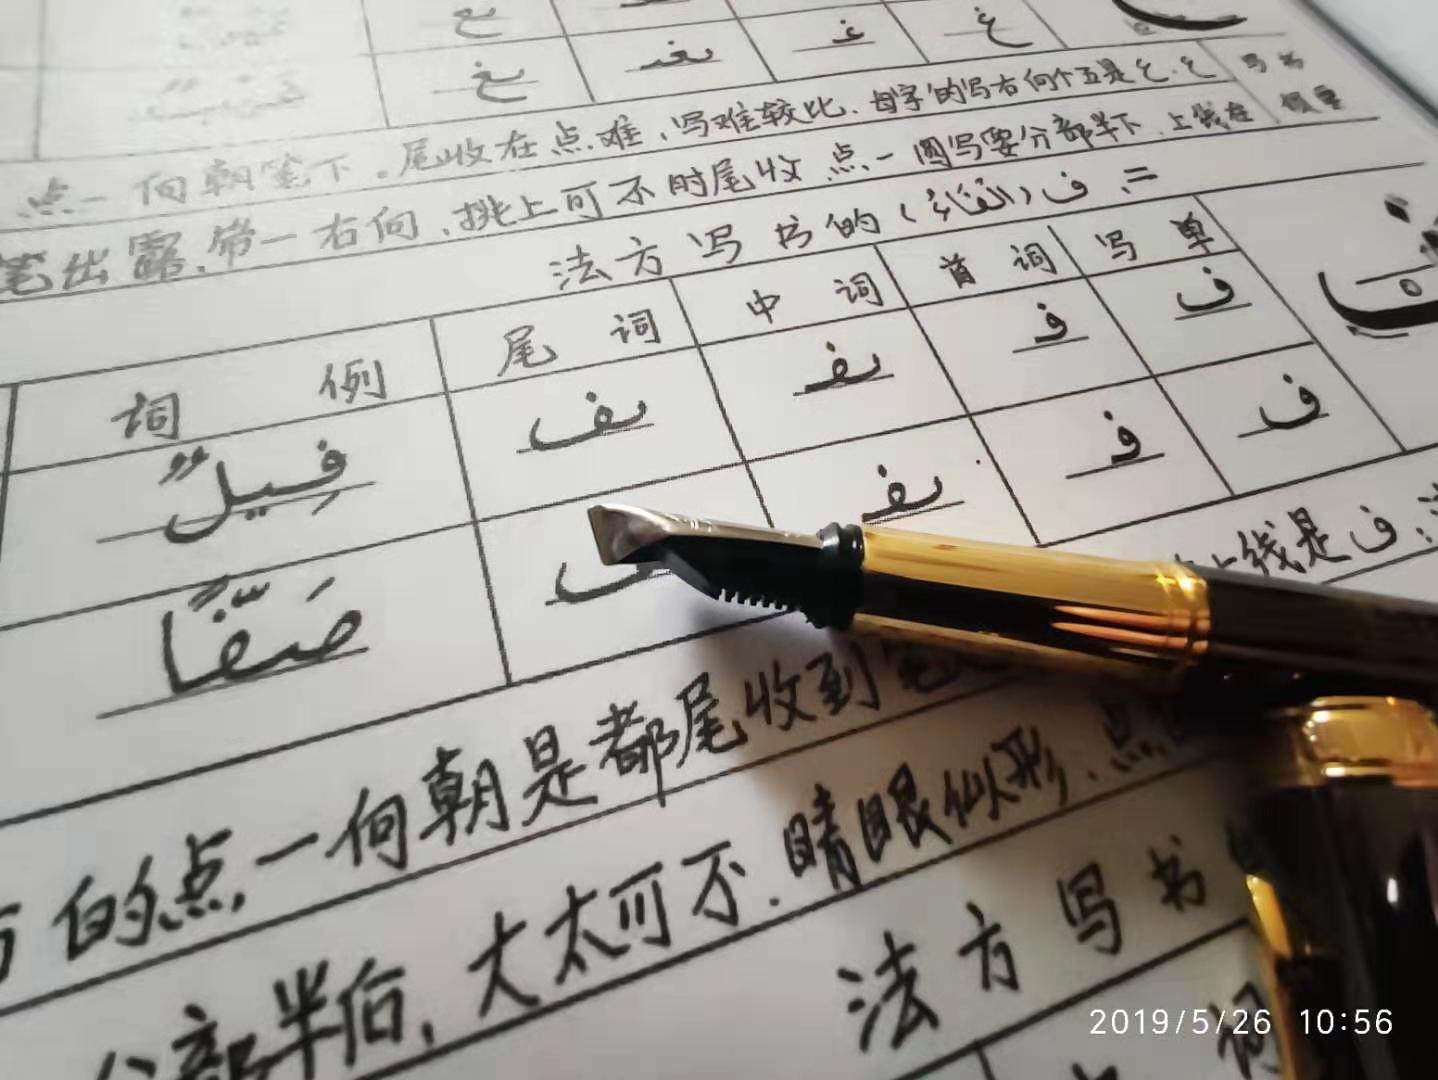 غ غـ ـغـ ـغ
书写 ع、غ 是五个向右写的字母、比较难写、难点在收尾。下笔朝向一点、
要领 在线上、下半部分要写圆一点 收尾时不可上挑、向右一带、露出笔
二、ف (الفَاءُ) 的书写方法
单写 词首 词中 词尾 例词
ف فـ ـفـ ـف فِيلٌ
ف فـ ـفـ ـف صَفًّا
ف 是线上
笔 到收尾都是朝向一点的
点、形似眼睛、不可太大、后半部分
书写方法
词
2019/5/26 10:56